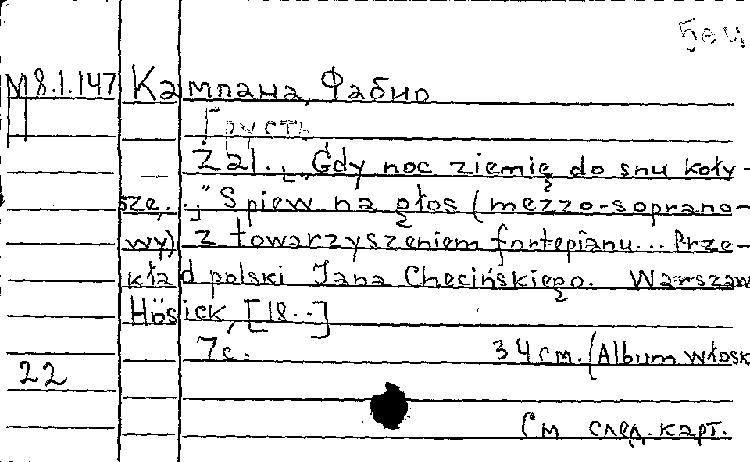 Бец
М8.1.147 Кампана, Фабио
П
Грусть
Żal. „Gdy noc ziemię do snu koły-
sze..." Śpiew na głos (mezzo-soprano-
wy) z towarzyszeniem fortepianu... Prze-
kład polski Jana Chęcińskiego. Warszaw
Hösick, [18--]
7с. 34 см. (Album włosk
22
См след. карт.